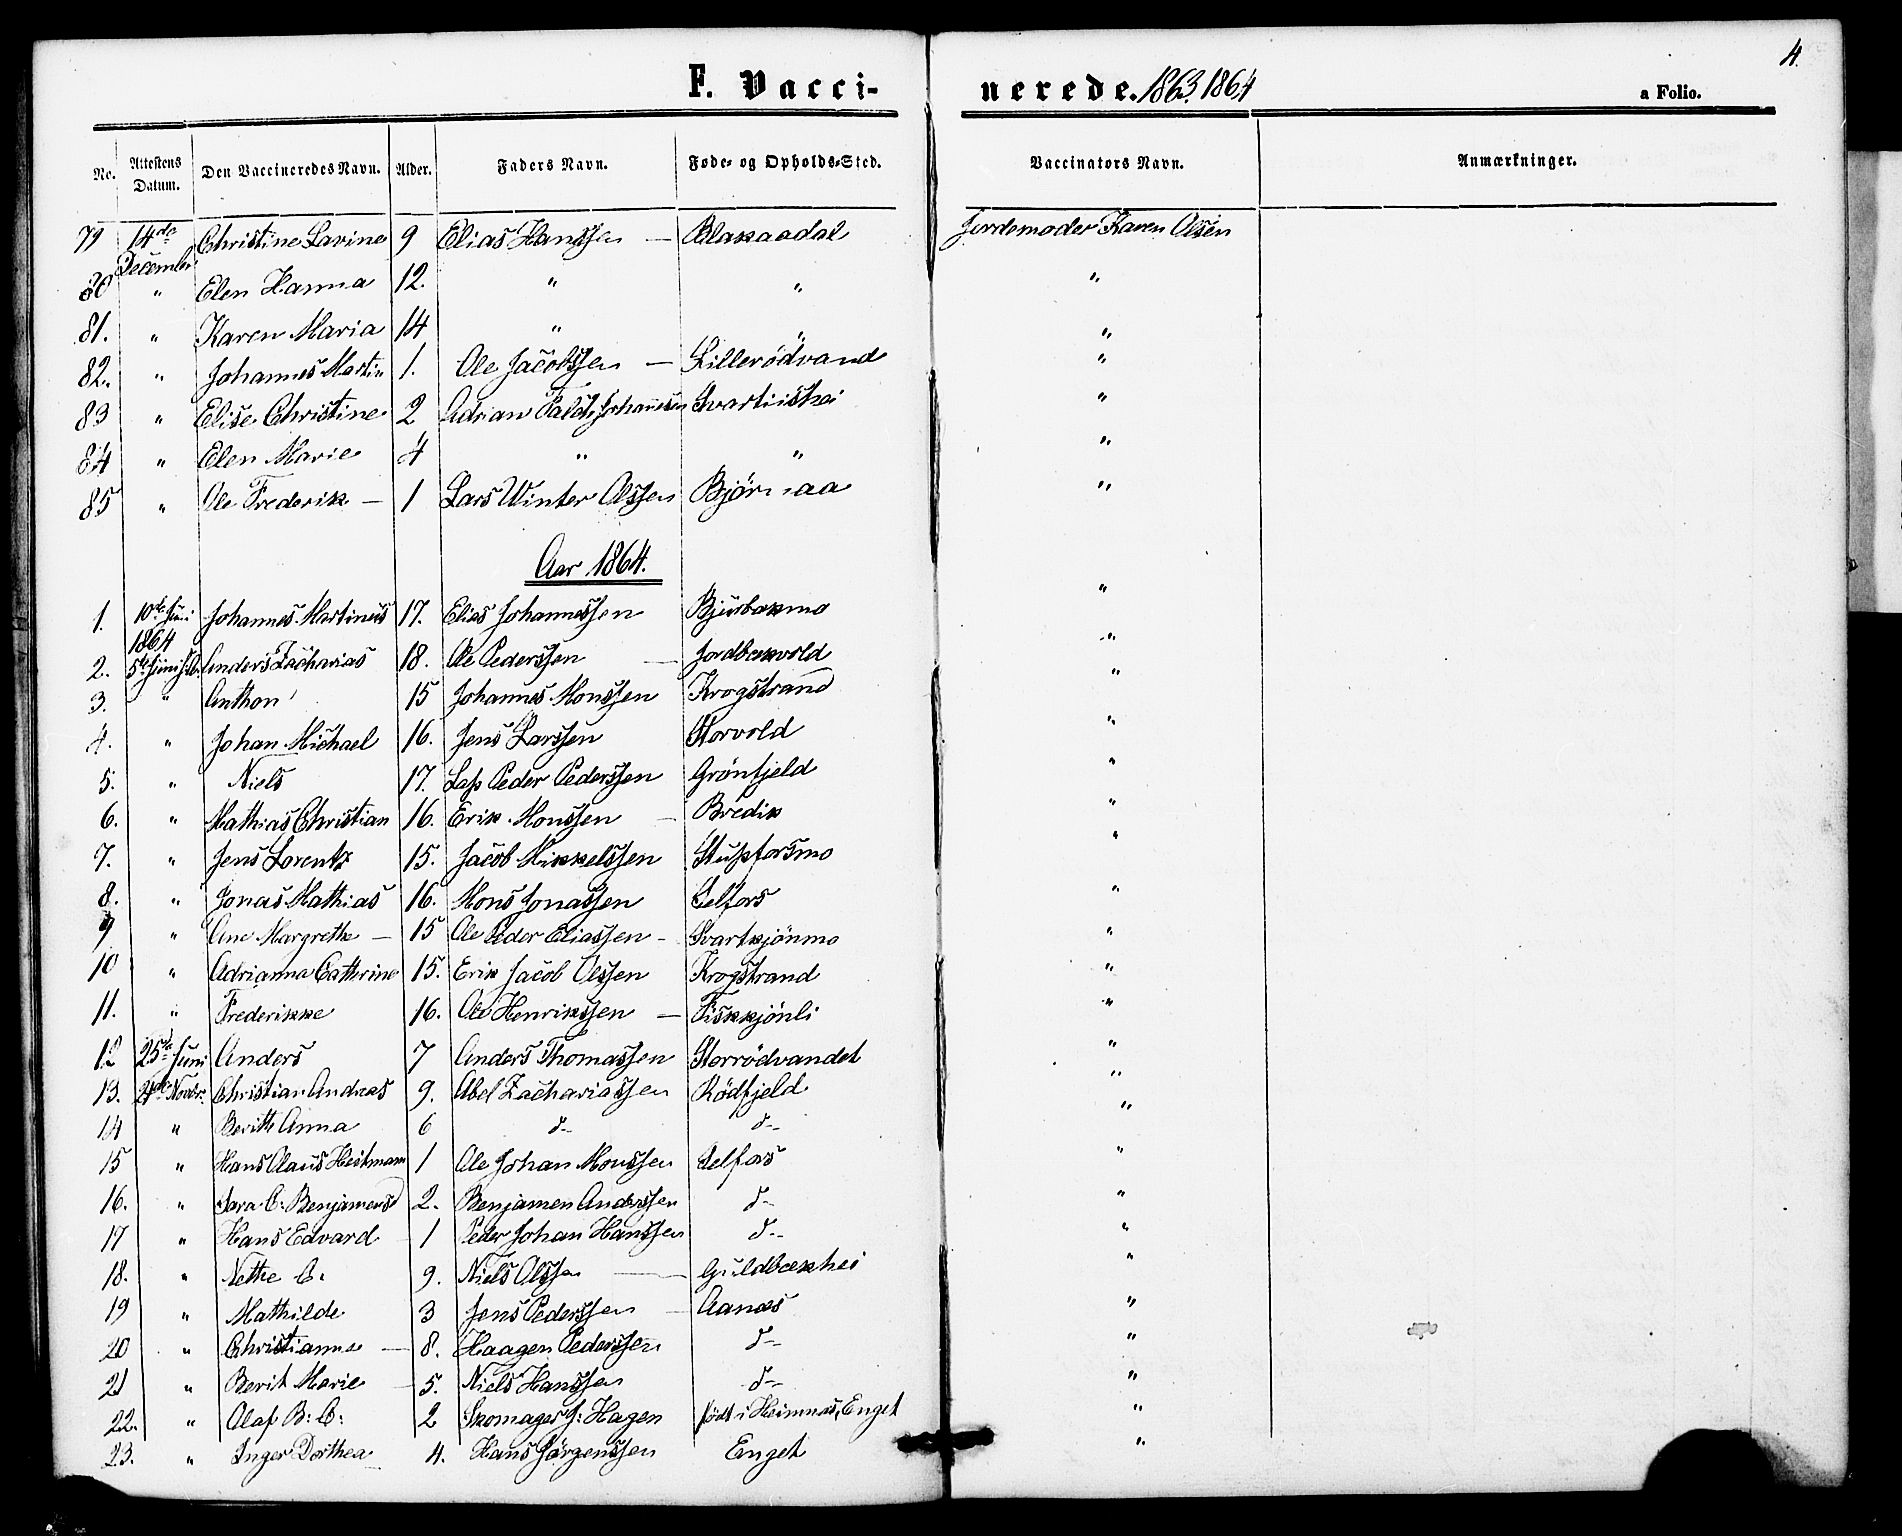 4.
F. Vacci- nerede. 1863. 1864 a Folio.
No. Attestens Datum. Den Vaccineredes Navn. Alder. Faders Navn. Føde- og Opholds-Sted. Vaccinators Navn. Anmærkninger.
79 14de December Christine Lavine 9 Elias Hanssen — Blakaadal Jordemoder Karen Olsen
80 " Elen Hanna 12. " " "
81. " Karen Maria 14 " "
82. " Johannes Martin 1. Ole Jacobssen — Lillerödvand "
83 " Elise Christine 2 Adrian Falch Johannesen Svartiishei "
84 " Elen Marie 4 " " "
85 " Ole Frederik — 1 Lars Winter Olssen Bjørnaa "
Aar 1864.
1. 10de Juni 1864 Johannes Martinus 17. Elias Johannessen Bjurbækmo "
2. 5te Juni Anders Zacharias 18. Ole Pederssen — Jordbækvold "
3. " Anthon 15 Johannes Monssen Krogstrand "
4. " Johan Michael 16. Jens Larssen Storvold "
5. " Niels 17. Lap Peder Pederssen Grönfjeld "
6. " Mathias Christian 16. Erik Monssen — Bredik "
7. " Jens Lorentz 15. Jacob Mikkelssen Stupforsmo "
8. " Jonas Mathias 16. Mons Jonassen Selfors "
9 " Ane Margrethe — 15 Ole Peder Eliassen - Svartkjönmo "
10 " Adrianna Cathrine 15. Erik Jacob Olssen Krogstrand "
11. " Frederikke 16. Ole Henrikssen — Fiskkjönli "
12 25de Juni Anders 7 Anders Thomassen Storrödvandet "
13. Novbr. Christian Andreas 9. Abel Zachariassen Rödfjeld "
14 " Berith Anna 6 d- d- "
15 " Hans Olaus Heitmann 1 Ole Johan Monssen Selfors "
16. " Sara C. Benjamensd 2. Benjamen Anderssen d- "
17 " Hans Edvard 1 Peder Johan Hanssen d- "
18. " Nethe C. 9. Niels Olssen — Guldbækhei "
19 " Mathilde 3 Jens Pederssen — Aanæs "
20 " Christianna — 8. Haagen Pederssen d- "
21 " Berit Marie 5. Niels Hanssen d- "
22. " Olaf B: C: 2 Skomager J: Hagen födt i Heimnæs, Enget "
23. " Inger Dorthea 4. Hans Jörgenssen Enget "